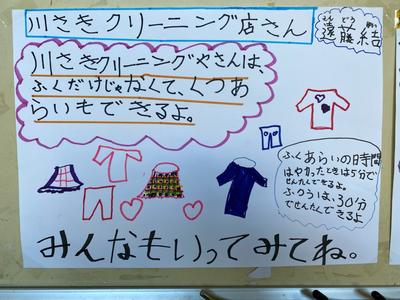 川さきクリーニング店さん
えんどう ゆい
遠藤 結
川さきクリーニングやさんは、
ふくだけじゃなくて、くつあ
らいもできるよ。
ふくあらいの日時間
はやかったときは5分で
せんたくできるよ。
ふつうは、30分
でせんたくできるよ
みんなもいってみてね。